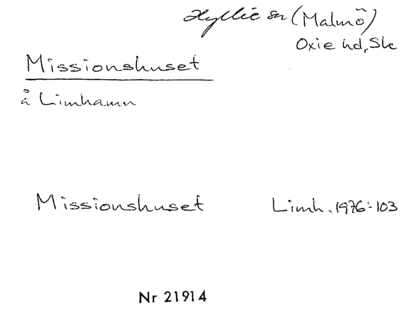 Hyllie sn (Malmö)
Oxie hd, Sk
Missionshuset
å Limhamn
Missionshuset Limh. 1976:103
Nr 21914